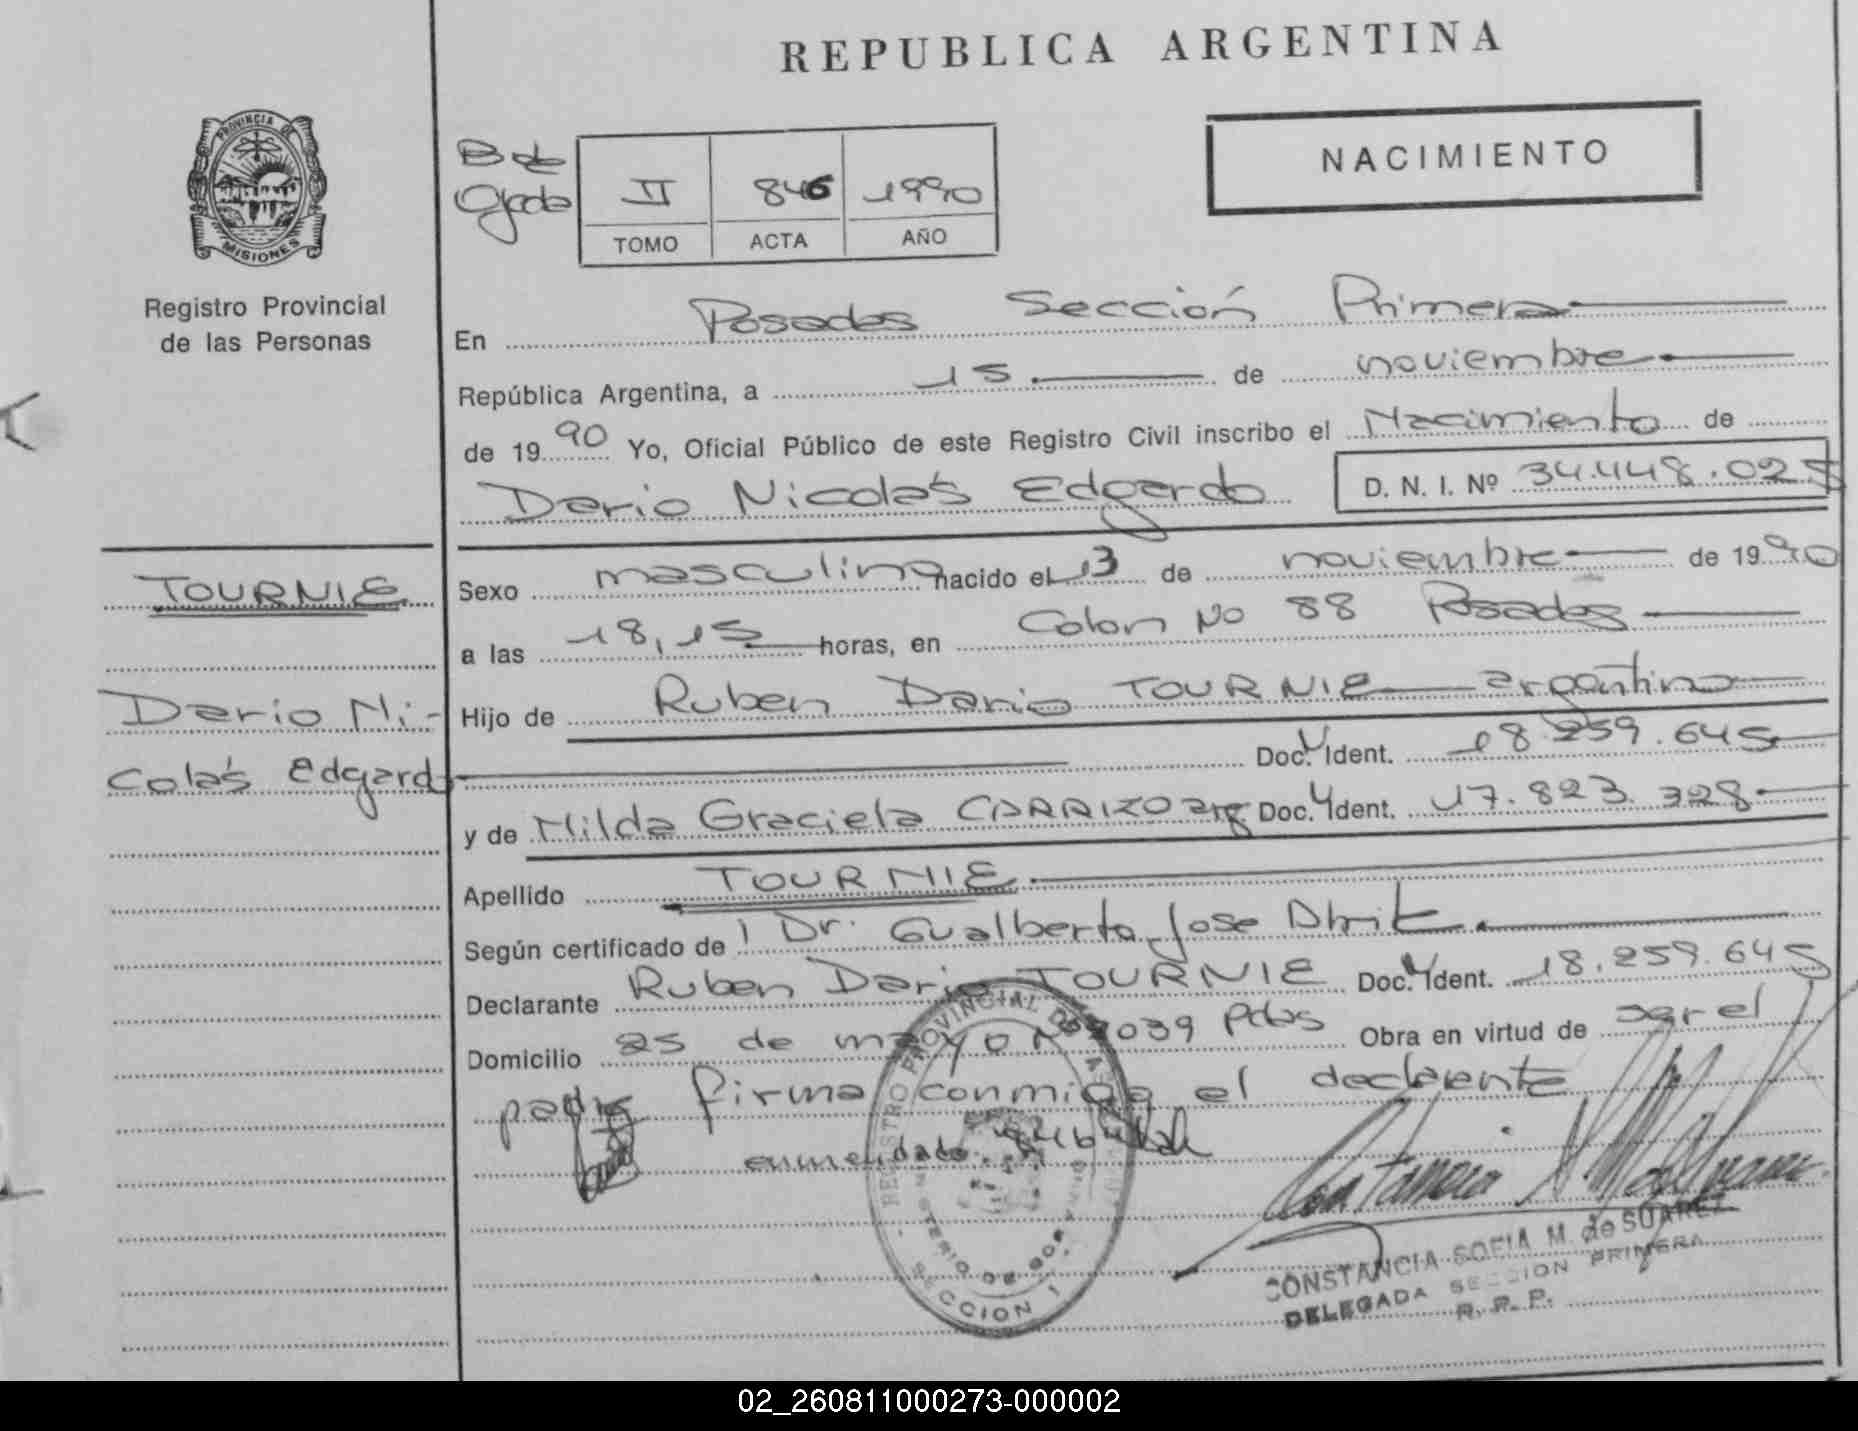 REPUBLICA ARGENTINA
NACIMIENTO
II 846 1990
TOMO ACTA AÑO
PROVINCIA DE
MISIONES
Registro Provincial
de las Personas
En Posadas Sección Primera
República Argentina, a 15 de noviembre
de 1990 Yo, Oficial Público de este Registro Civil inscribo el Nacimiento de
Dario Nicolás Edgardo D. N. I. Nº 34.448.025
TOURNIE
Dario Ni-
colás Edgardo
Sexo masculino nacido el 13 de noviembre de 1990
a las 18,15 horas, en Colon No 88 Posadas
Hijo de Ruben Dario TOURNIE argentino
Doc. Ident. 18.259.645
y de Nilda Graciela CARRIZO arg Doc. Ident. 17.823.328
Apellido TOURNIE
Según certificado de Dr. Gualberto Jose
Declarante Ruben Dario TOURNIE Doc. Ident. 18.259.645
Domicilio 25 de mayo Nº 2039 Pdas Obra en virtud de ser el
padre firma conmigo el declarante
enmendado: 846 vale
REGISTRO PROVINCIAL DE LAS PERSONAS
MINISTERIO DE GOBIERNO
SECCION 1
CONSTANCIA SOFIA M. de SUAREZ
DELEGADA SECCION PRIMERA
R. P. P.
02_260811000273-000002